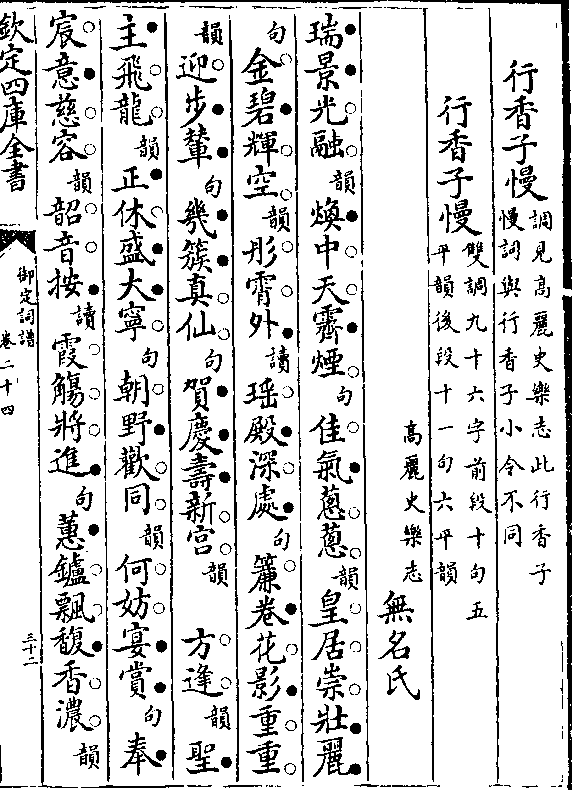 行香子慢調見高麗史樂志此行香子
慢詞與行香子小令不同
行香子慢雙調九十六字前段十句五
平韻後段十一句六平韻
高麗史樂志 無名氏
瑞景光融韻煥中天霽煙句佳氣蔥蔥韻皇居崇壯麗
句金碧輝空韻彤霄外讀瑶殿深處句簾卷花影重重
韻迎步輦句幾簇真仙句賀慶壽新宫韻 方逢韻聖
主飛龍韻正休盛大寧句朝野歡同韻何妨宴賞句奉
宸意慈容韻韶音按讀霞觴將進句蕙鑪飄馥香濃韻
欽定四庫全書 御定詞譜 卷二十四 三十二